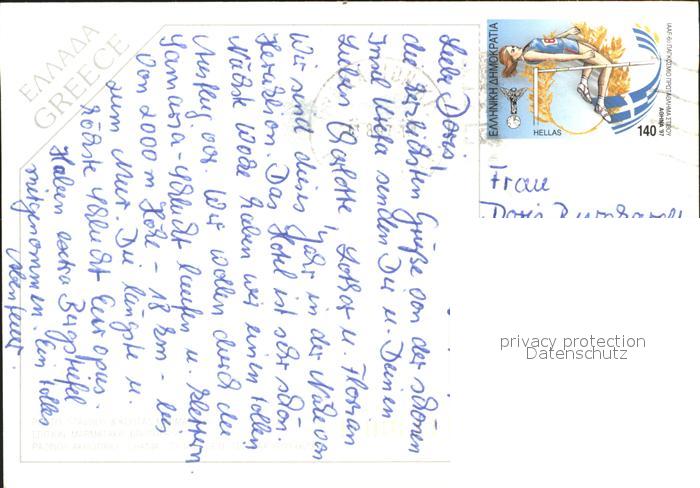 ΕΛΛΑΔΑ
GREECE
Liebe Doris!
die herzlichsten Grüße von der schönen
Insel Kreta senden Dir u. Deinen
Lieben Charlotte, Lothar u. Florian
Wir sind dieses Jahr in der Nähe von
Heraklion. Das Hotel ist sehr schön.
Nächste Woche haben wir einen tollen
Ausflug vor. Wir wollen durch die
Samaria-Schlucht laufen u. klettern.
Von 2000 m Höhe - 18 km - bis
zum Meer. Die längste u.
größte Schlucht Europas.
Haben extra Bergstiefel
mitgenommen. Ein tolles
Abenteuer.
ΕΛΛΗΝΙΚΗ ΔΗΜΟΚΡΑΤΙΑ
HELLAS
140
ΑΘΗΝΑ '97
Frau
Doris
privacy protection
Datenschutz